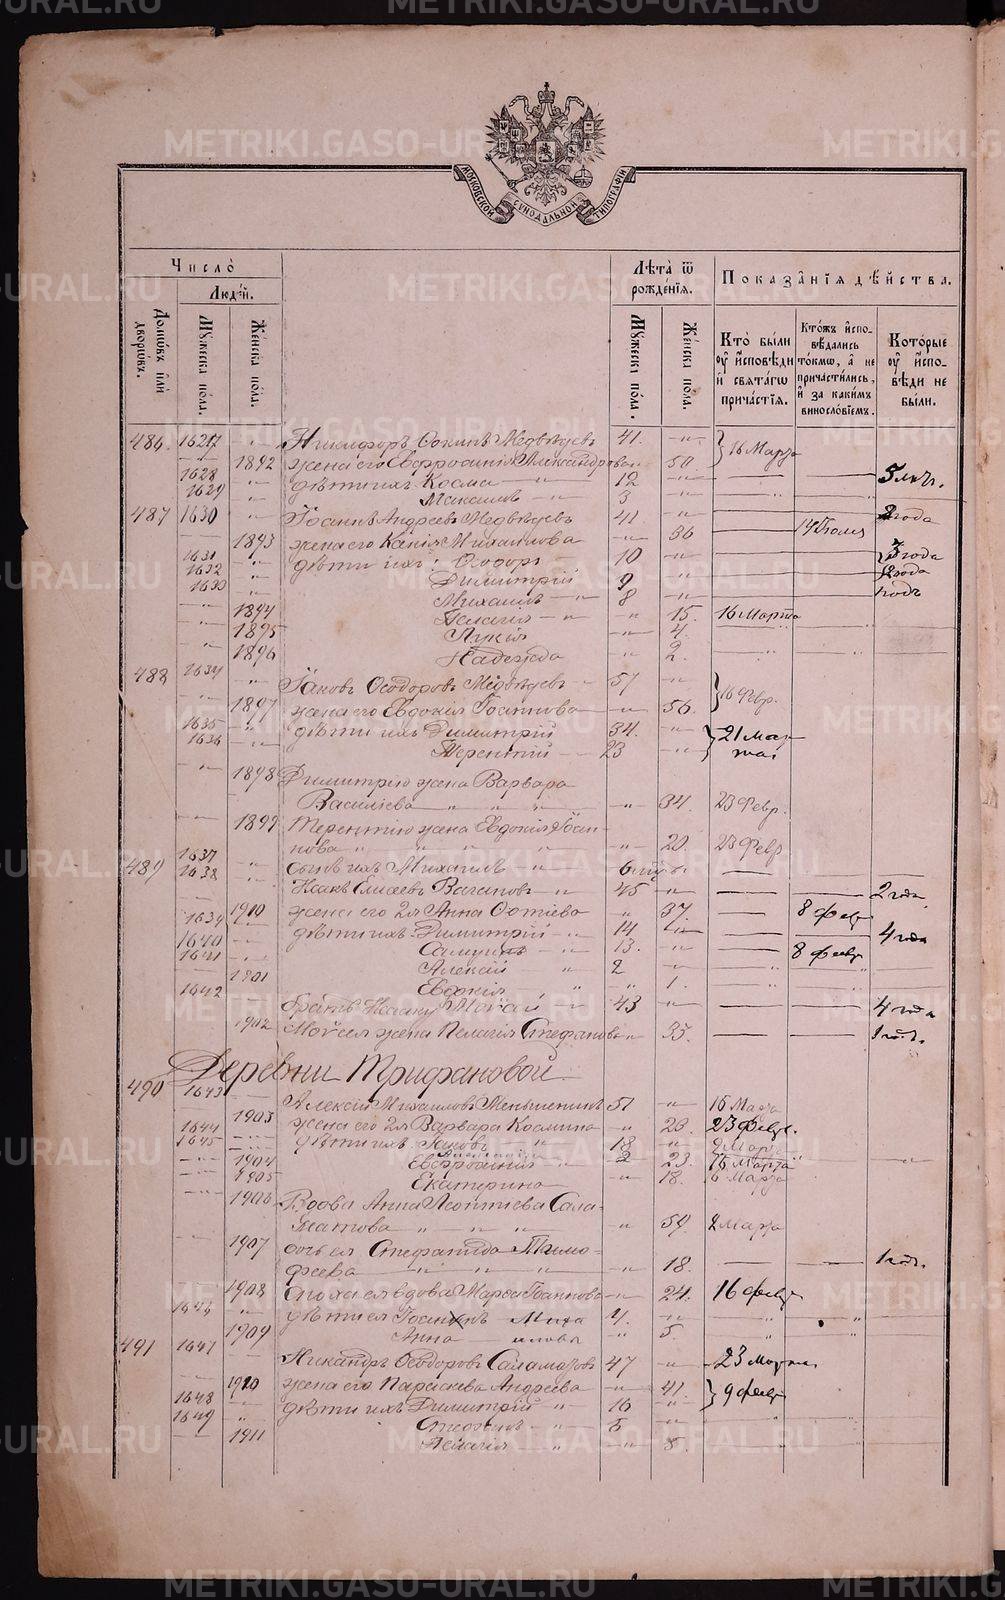 МОСКОВСКОЙ СѴНОДАЛЬНОЙ ТИПОГРАФІИ
Число̀
Люде́й.
Домѡ́въ и҆лѝ дворѡ́въ.
Мꙋ́жеска по́ла.
Же́нска по́ла.
Лѣ̑та ѿ рожде́нїѧ.
Мꙋ́жеска по́ла.
Же́нска по́ла.
Показа̑нїѧ дѣ́йства.
Кто̀ бы́ли оу҆ и҆сповѣ́ди и҆ свѧта́гѡ причⷭ҇тїѧ.
Кто́жъ и҆сповѣ́дались то́кмѡ, а҆ не причасти́лись, и҆ за каки́мъ винослов́їемъ.
Кото́рые оу҆ и҆сповѣ́ди не бы́ли.
486. 1627 -"- Никифоръ Медвѣдевъ 41. -"- 16 Марта
-"- 1892 жена его Евфросинія Александрова -"- 50.
1628 -"- дѣти ихъ Косма -"- 12 -"- 5 лѣтъ.
1629 -"- Максимъ -"- 3 -"-
487 1630 -"- Іоаннъ Андреевъ Медвѣдевъ 41. -"- 2 года
-"- 1893 жена его Михаилова -"- 36 14 Іюля
1631 -"- дѣти ихъ: Ѳеодоръ 10 -"- 3 года
1632 -"- Димитрій 9 -"- 2 года
1633 -"- Михаилъ -"- 8 -"- годъ
-"- 1894 Пелагія -"- " 15. 16 Марта
-"- 1895 Лукія -"- 4.
-"- 1896 Надежда -"- 2.
488 1634 -"- Іаковъ Ѳеодоровъ Медвѣдевъ 57 -"- 16 Февр.
-"- 1897 жена его Евдокія Іоаннова -"- 56.
1635 -"- дѣти ихъ Димитрій 34. -"- 21 Мар-
1636 -"- Терентій 23 -"- та
-"- 1898 Димитрію жена Варвара
Василіева " " " -"- 34. 23 Февр.
1899 Терентію жена Евдокія Іоан-
нова " " " -"- 20. 23 Февр.
1637 -"- сынъ ихъ Михаилъ " 6
489 1638 -"- Исаакъ Елисеевъ Вагановъ -"- 45 -"- 2 года
1900 жена его 2я Анна " 37. 8 февр
1639 -"- дѣти ихъ: Димитрій -"- 14 -"- 4 года
1640 -"- Самуилъ -"- 13. -"- 8 февр
1641 -"- Алексій " 2 -"-
-"- 1901 Евдокія " " 1.
1642 братъ Исааку Моисей -"- 43 -"- 4 года
1902 Моисея жена Пелагія Стефанова -"- 35. 1 годъ.
Деревни Трифановой.
490 1643 Алексій Михаиловъ Меньшенинъ 51 -"- 16 Марта
-"- 1903 жена его 2я Варвара Космина -"- 23. 23 Февр.
1644 -"- дѣти ихъ: Іаковъ " 18 -"- 9 Марта
1645 -"- 2
-"- 1904 Евфросинія " 23. 16 Марта
-"- 1905 Екатерина -"- 18. 6 Марта
-"- 1906 Вдова Анна Леонтіева Сала-
матова " -"- " 59. 2 Марта
-"- 1907 дочь ея Стефанида Тимо-
феева " " " -"- 18. 1 годъ.
-"- 1908 Сноха ея вдова Марѳа Іоаннова -"- 24. 16 февр
1646 " дѣти ея Іоаннъ Миха 4. -"-
-"- 1909 Анна иловы " 5.
491 1647 -"- Никандръ Ѳеодоровъ Саламатовъ 47 -"- 23 Марта
-"- 1910 жена его Параскева Андреева -"- 41. 9 февр
1648 -"- дѣти ихъ Димитрій " 16 -"-
1649 " Стефанъ -"- 6 -"-
-"- 1911 Пелагія " " 8.
METRIKI.GASO-URAL.RU